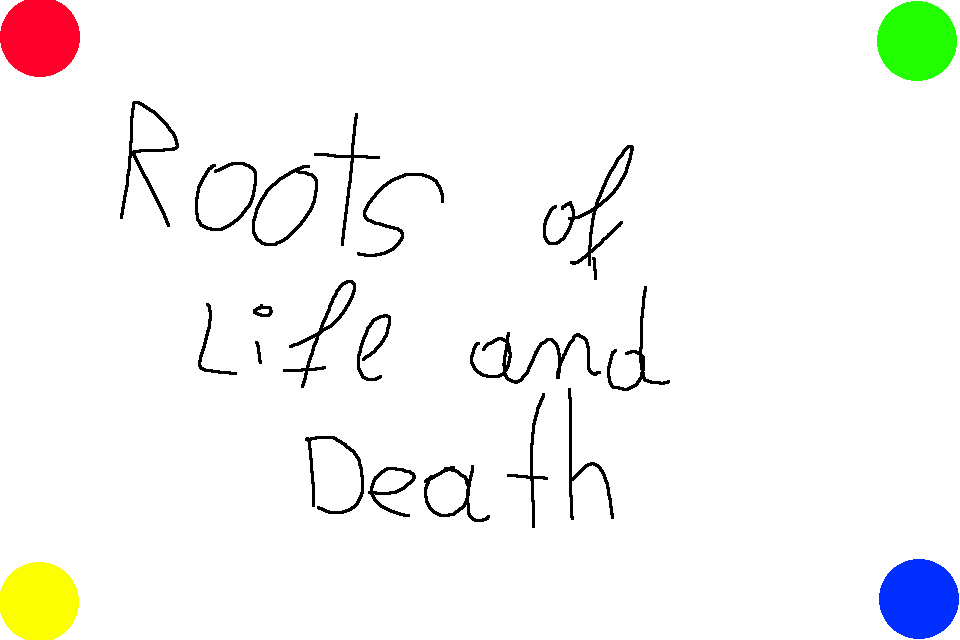 Roots of
Life and
Death